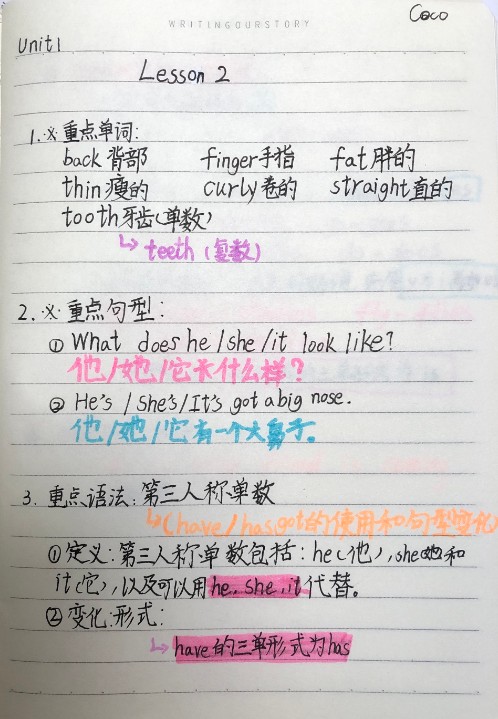 WRITINGOURSTORY
Coco
Unit1
Lesson 2
1.※重点单词:
back 背部 finger手指 fat胖的
thin瘦的 curly卷的 straight直的
tooth牙齿(单数)
↳teeth (复数)
2.※重点句型:
① What does he/she/it look like?
他/她/它长什么样?
② He's / She's/It's got a big nose.
他/她/它有一个大鼻子。
3. 重点语法:第三人称单数
↳(have/has got的使用和句型变化)
①定义:第三人称单数包括: he(他), she她和
it(它),以及可以用he, she, it代替。
②变化形式:
↳have的三单形式为has